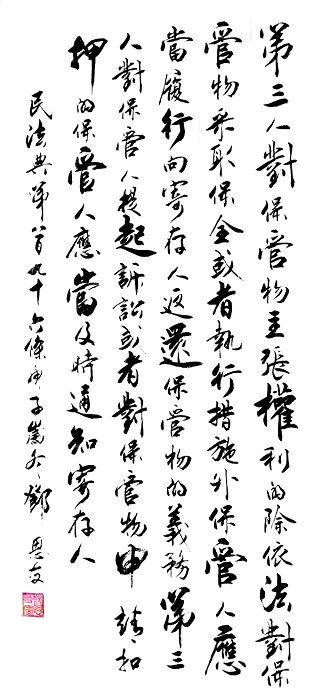 第三人對保管物主張權利的除依法對保
管物采取保全或者執行措施外保管人應
當履行向寄存人返還保管物的義務第三
人對保管人提起訴訟或者對保管物申請扣
押的保管人應當及時通知寄存人
民法典第八百九十六條庚子歲冬鄧恩安